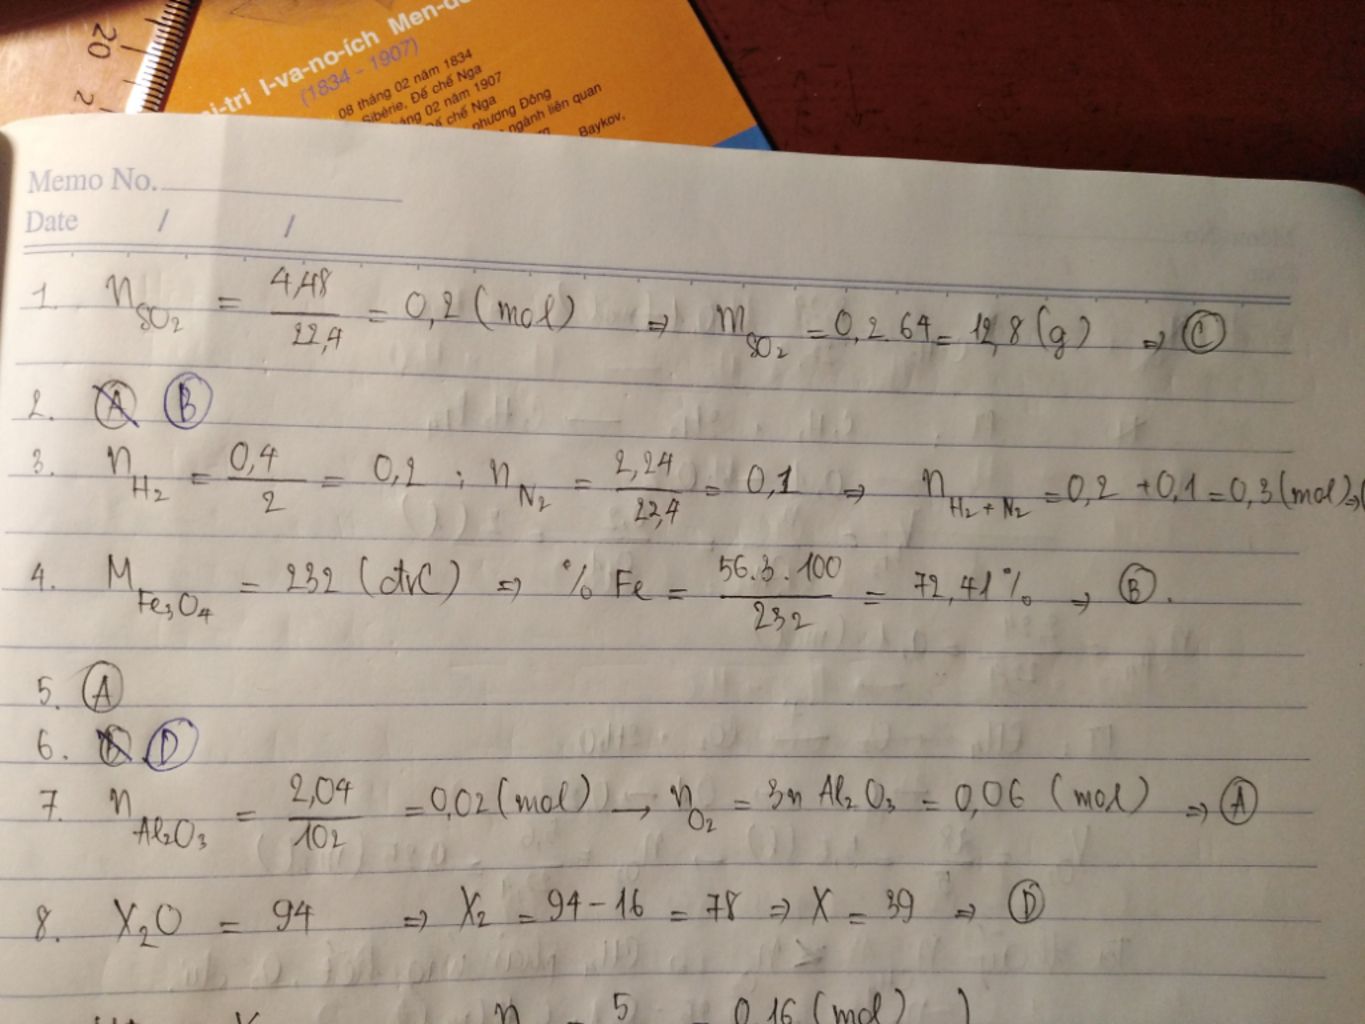 20
2
i-tri I-va-no-ích Men-de
(1834 - 1907)
08 tháng 02 năm 1834
Sibérie, Đế chế Nga
áng 02 năm 1907
Đế chế Nga
phương Đông
ngành liên quan
Baykov,
Memo No.
Date / /
1. n_{SO_2} = \frac{4,48}{22,4} = 0,2 (mol) ⇒ m_{SO_2} = 0,2.64 = 12,8 (g) ⇒ C
2. A B
3. n_{H_2} = \frac{0,4}{2} = 0,2 ; n_{N_2} = \frac{2,24}{22,4} = 0,1 ⇒ n_{H_2 + N_2} = 0,2 + 0,1 = 0,3 (mol) ⇒
4. M_{Fe_3O_4} = 232 (đvC) ⇒ % Fe = \frac{56.3.100}{232} = 72,41% ⇒ B.
5. A
6. D
7. n_{Al_2O_3} = \frac{2,04}{102} = 0,02 (mol) → n_{O_2} = 3n Al_2O_3 = 0,06 (mol) ⇒ A
8. X_2O = 94 ⇒ X_2 = 94 - 16 = 78 ⇒ X = 39 ⇒ D
n = 5 = 0,16 (mol) )